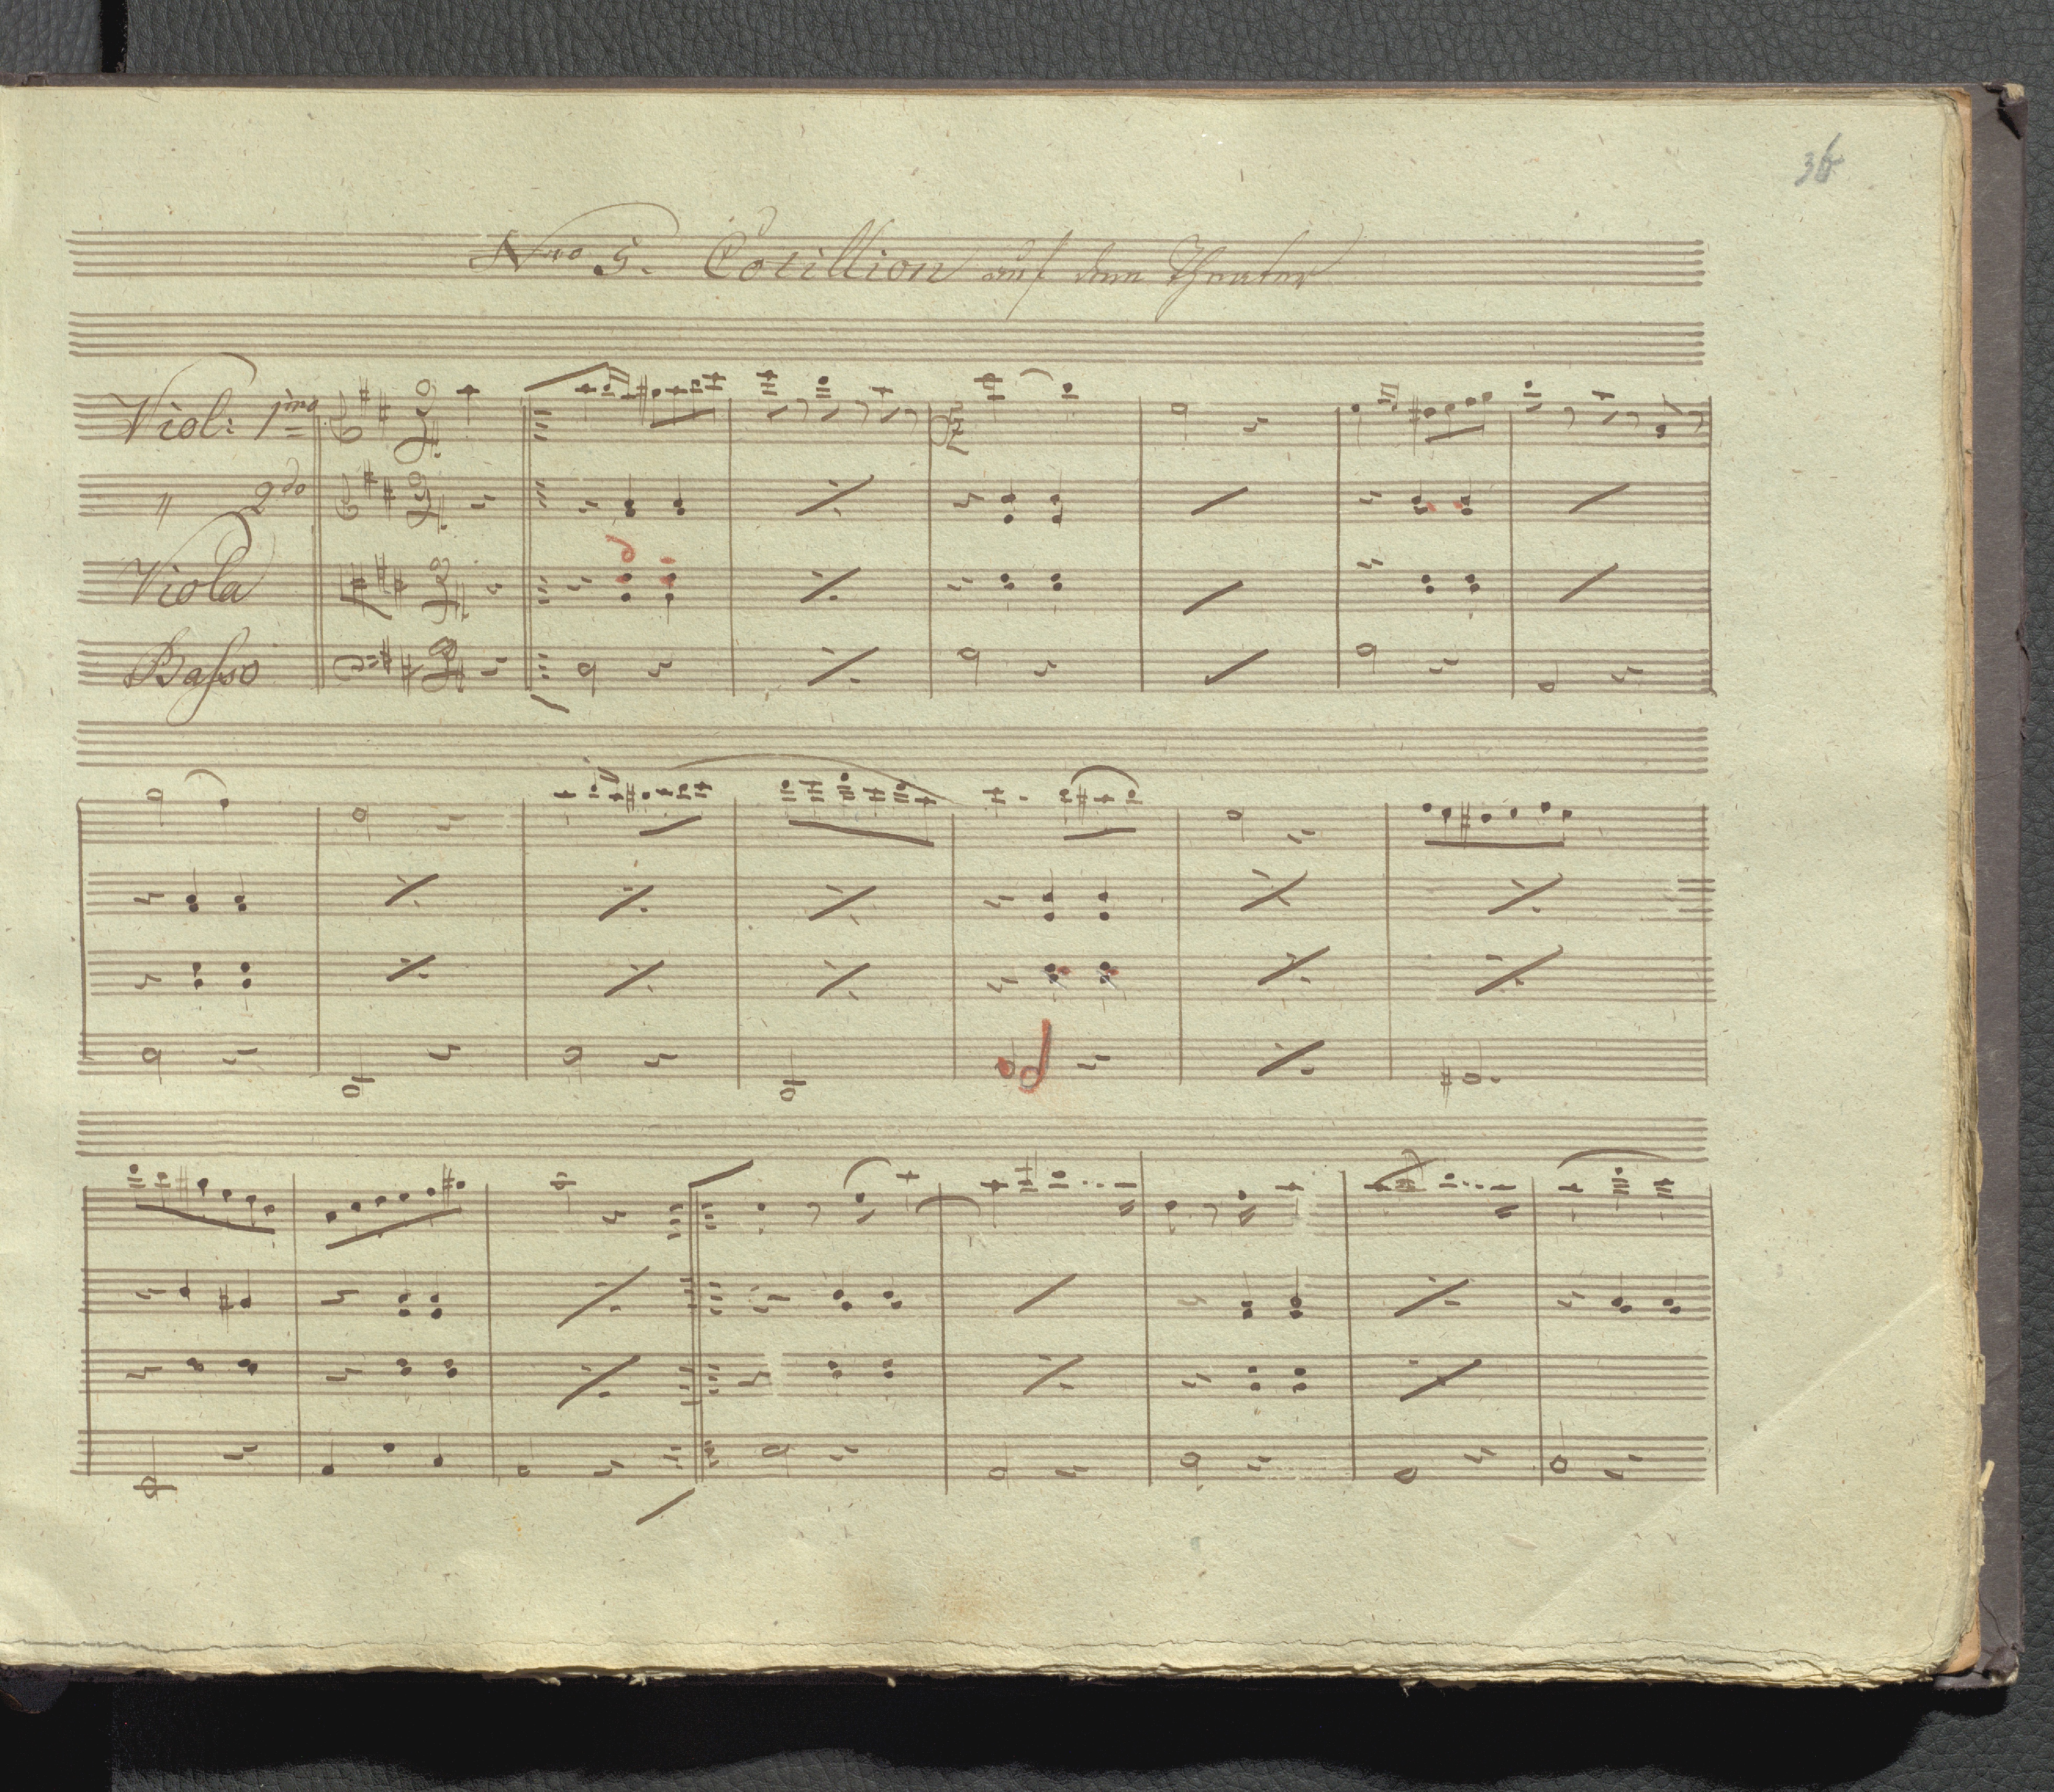 36
Nro 5. Cotillion auf dem Theater
Viol: 1mo
" 2do
Viola
Basso